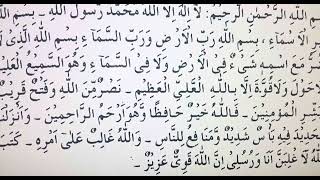 مِ اللّٰهِ الرَّحْمٰنِ الرَّحِيْمِ: لَآ اِلٰهَ اِلَّا اللّٰهُ مُحَمَّدٌ رَّسُوْلُ اللّٰهِ ـ بِسْمِ
رِ الْاَسْمَآءِ ، بِسْمِ اللّٰهِ رَبِّ الْاَرْضِ وَرَبِّ السَّمَآءِ بِسْمِ اللّٰهِ الَّذِىْ لَا
ضُرُّ مَعَ اسْمِهٖ شَىْءٌ فِى الْاَرْضِ وَلَا فِى السَّمَآءِ وَهُوَ السَّمِيْعُ الْعَلِيْ
لَاحَوْلَ وَلَاقُوَّةَ اِلَّا بِاللّٰهِ الْعَلِىِّ الْعَظِيْمِ ـ نَصْرٌ مِّنَ اللّٰهِ وَفَتْحٌ قَرِيْبٌ
بَشِّرِ الْمُؤْمِنِيْنَ ـ فَاللّٰهُ خَيْرٌ حَافِظًا وَّهُوَ اَرْحَمُ الرَّاحِمِيْنَ ـ وَاَنْزَلْنَا
لْحَدِيْدَ فِيْهِ بَاْسٌ شَدِيْدٌ وَّمَنَافِعُ لِلنَّاسِ ـ وَاللّٰهُ غَالِبٌ عَلٰٓى اَمْرِهٖ ـ كَتَبَ
للّٰهُ لَاَ غْلِبَنَّ اَنَا وَرُسُلِىْ اِنَّ اللّٰهَ قَوِىٌّ عَزِيْزٌ ـ